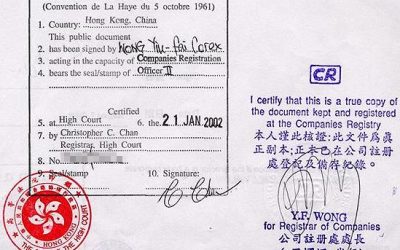 (Convention de La Haye du 5 octobre 1961)
1. Country: Hong Kong, China
This public document
2. has been signed by WONG Yiu-fai Corex
3. acting in the capacity of Companies Registration
4. bears the seal/stamp of Officer II
Certified
5. at High Court 6. the 21 JAN 2002
7. by Christopher C. Chan
Registrar, High Court
8. No.
9. Seal/stamp 10. Signature:
HONG KONG
THE HIGH COURT
CR
I certify that this is a true copy of
the document kept and registered
at the Companies Registry
本人謹此核證:此文件為真
正副本:正本已在公司註冊
處登記及備存紀錄.
Y.F. WONG
for Registrar of Companies
公司註冊處處長